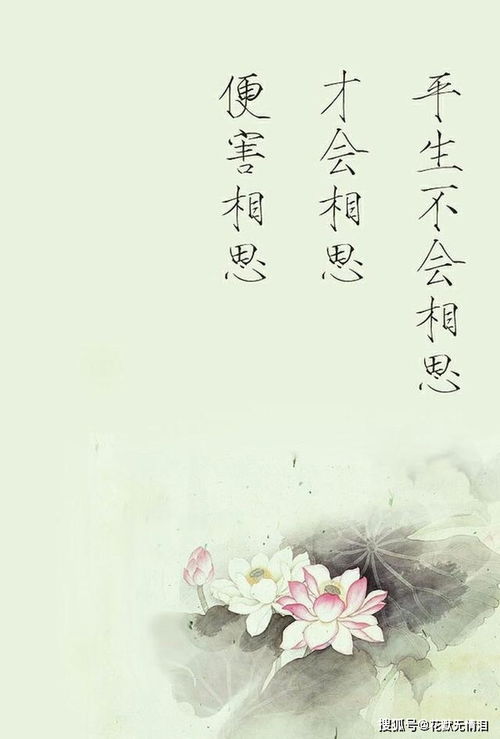 平生不会相思
才会相思
便害相思
搜狐号@花默无情泪